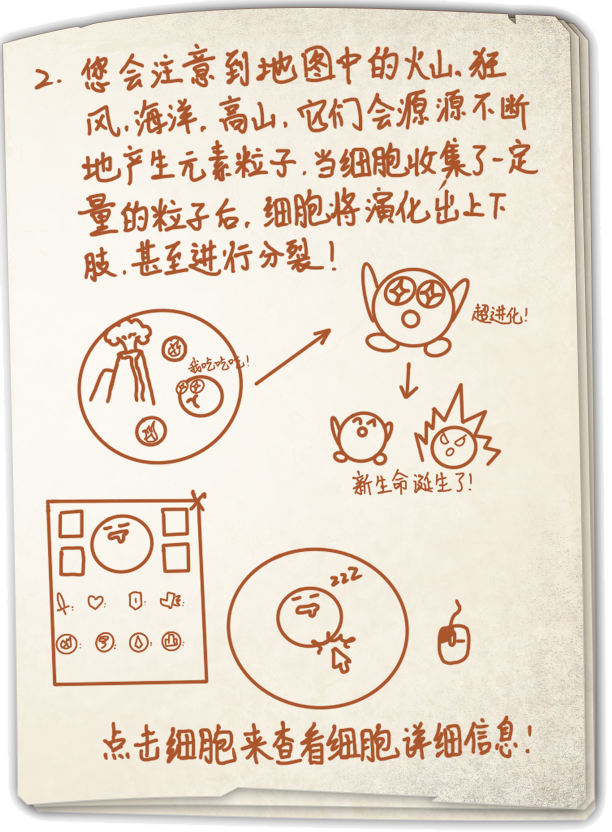 2. 您会注意到地图中的火山、狂
风、海洋、高山，它们会源源不断
地产生元素粒子，当细胞收集了一定
量的粒子后，细胞将演化出上下
肢，甚至进行分裂！
超进化！
我吃吃吃！
新生命诞生了！
zzz
点击细胞来查看细胞详细信息！